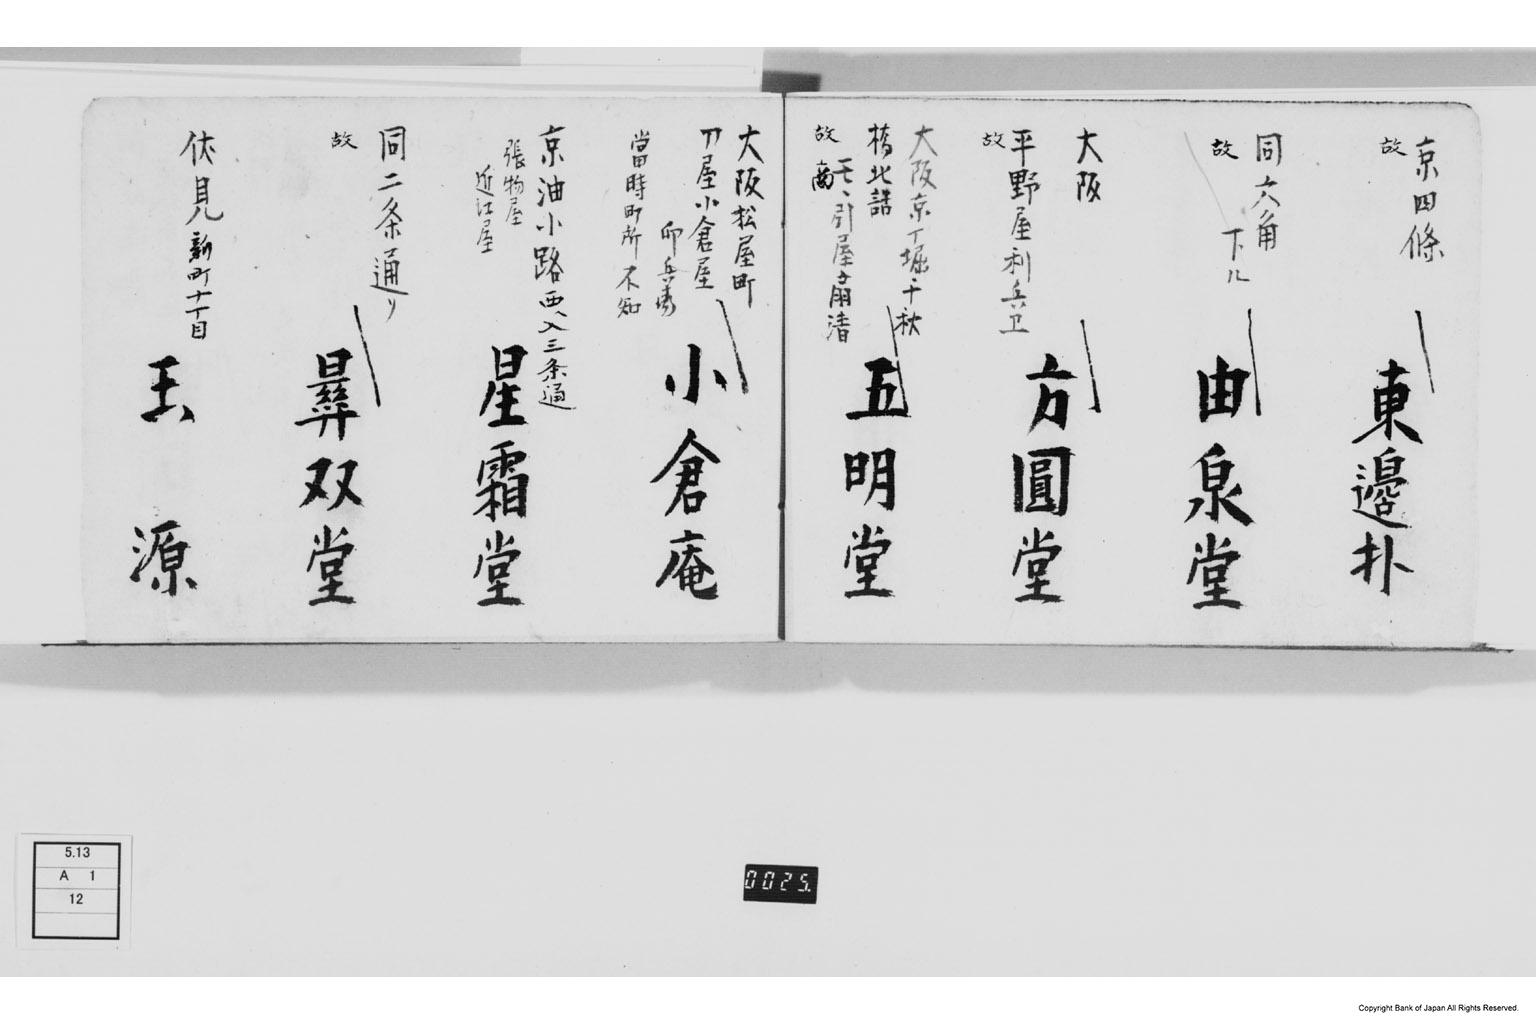 京四條
故
東邉扑
同六角
下ル
故
由泉堂
大阪
平野屋利兵卫
故
方圓堂
大阪京丁堀千秋
橋北詰
引屋扇清
故
五明堂
大阪松屋町
刀屋小倉屋
卯兵衛
當時町所不知
小倉庵
京油小路西入三条通
張物屋
近江屋
星霜堂
同二条通リ
故
彛双堂
伏見新町十丁目
玉源
5.13
A 1
12
0025.
Copyright Bank of Japan All Rights Reserved.